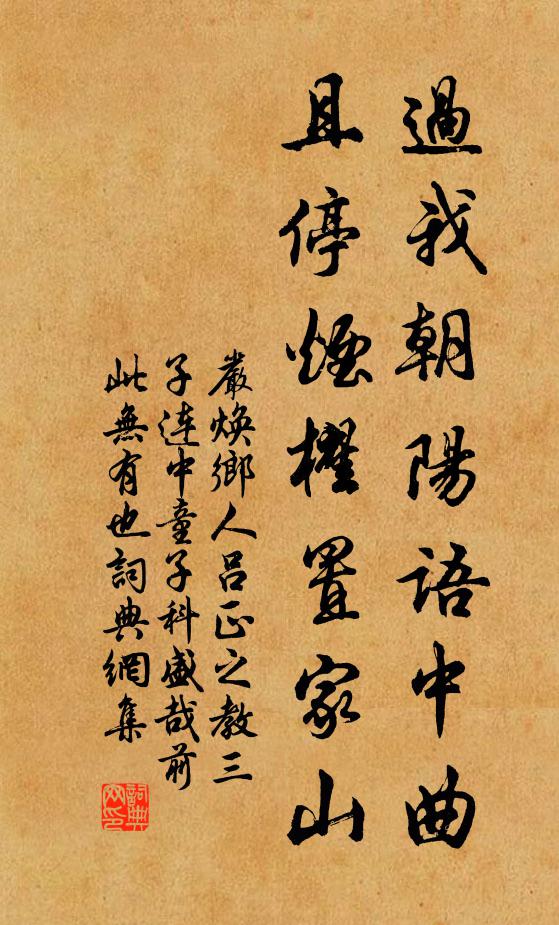 過我朝陽語中曲
且停煙櫂置家山
嚴煥鄉人呂正之教三
子連中童子科盛哉前
此無有也詞典網集
詞典網印